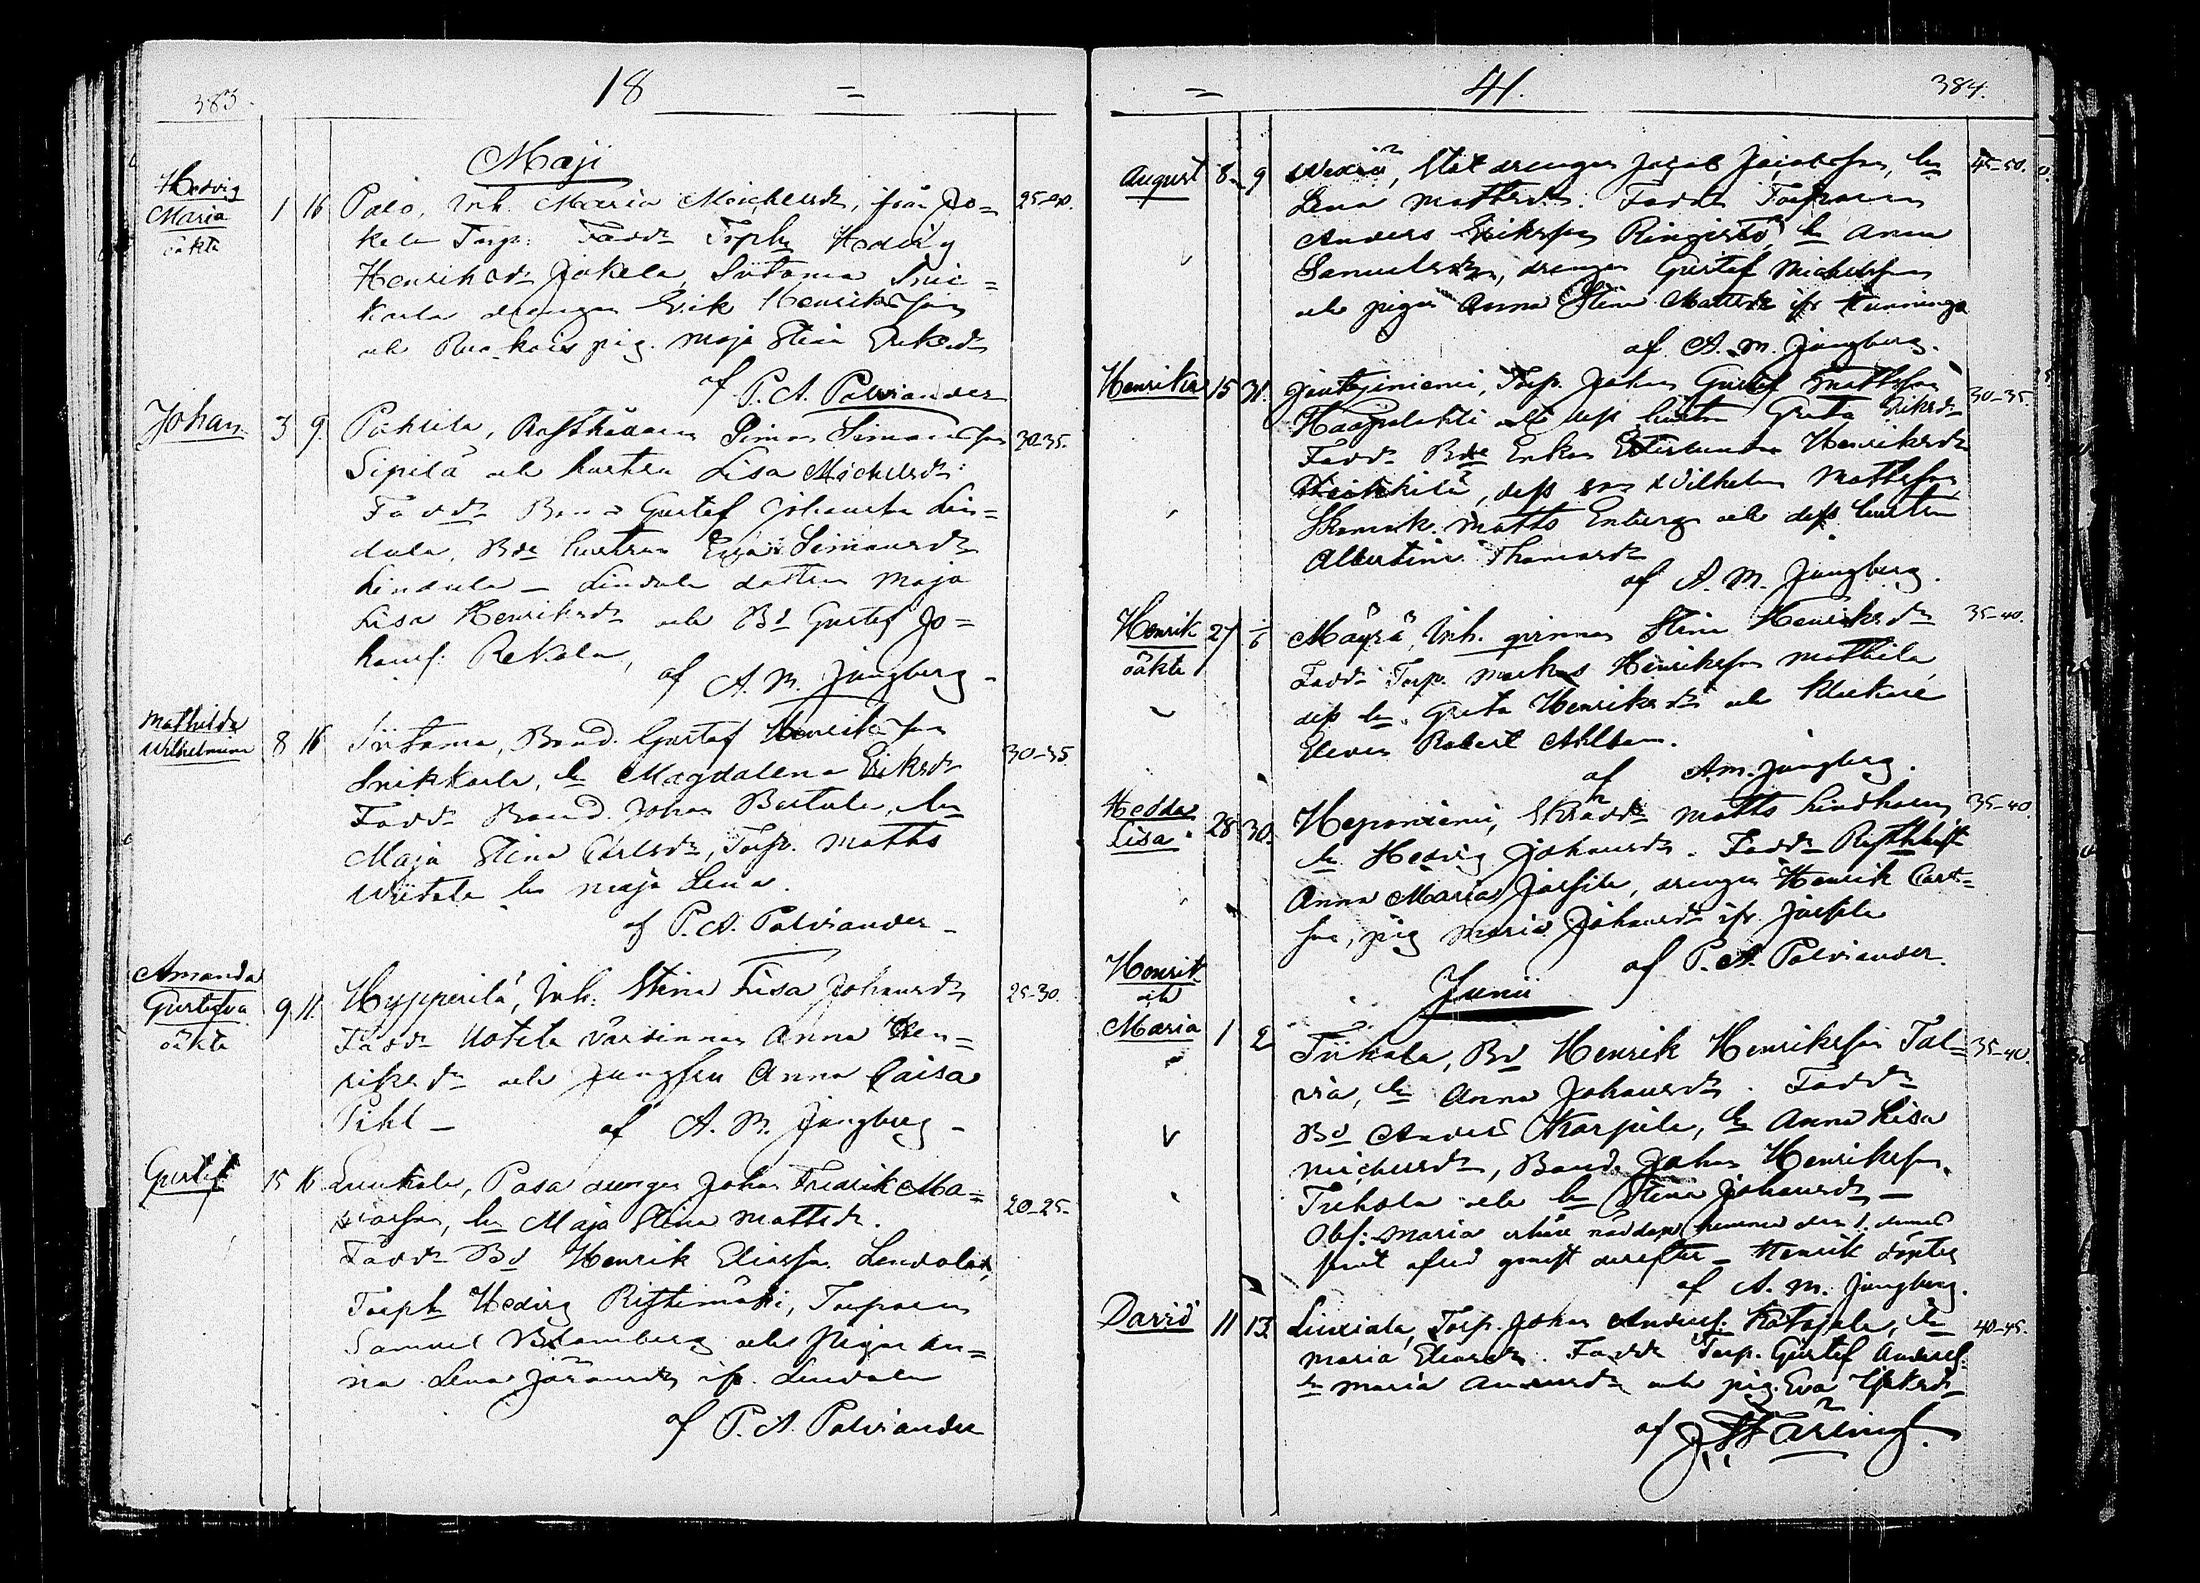 383.
18 =
Maji
Hedvig
Maria
oäkta
1 16
Palo, Inh. Maria Michelsdr, från Jo=
kela Torp. Faddr Torph Hedvig
Henriksdr Jokela, Sütama Snic=
karla drengen Erik Henriksson
och pig. Maja Stina Eriksdr
25-40.
af P. A. Palviander
Johan
3 9.
Pahula, Rusthållaren Simon Simonsson
Sipilä och hustru Lisa Michelsdr
Faddr Gustaf Johansson Lin=
dula, Bde hustrun Eva Simonsdr
Lindula — Lindula dottern Maja
Lisa Henriksdr och Bd Gustaf Jo=
hanss: Rekola,
30-35.
af A. M. Jungberg -
Mathilda
Wilhelmina
8 16
Sütama, Bond. Gustaf Henriksson
Snikkarla, hu Magdalena Eriksdr
Faddr Bond. Johan Bertula, hu
Maja Stina Carlsdr, Torp. Matts
Wütala hu Maja Lena.
30-35
af P. A. Palviander -
Amanda
Gustafva
oäkta
9 11
Hypperilä, Inh: Stina Lisa Johansdr
Faddr Uotila värdinnan Anna Hen=
riksdr och Jungfru Anna Caisa
Pihl —
25-30.
af A. M. Jungberg -
Gustaf
15 16
Luukala, Pasa drengen Johan Fredrik Ma=
hu Maja Stina Mattsdr.
Faddr Bd Henrik Eliasson Lendola,
Torph Hedvig Ristimäki, Torparen
Samuel Blomberg och Pigan An=
na Lena Göransdr ifr. Lendola
20-25-
af P. A. Palviander
= 41. 384.
August 8. 9
drengen Jacob Jacobsson, hu
Lena Mattsdr. Faddr Torparen
Anders Eriksson Ringistö hu Anna
Samuelsdr, drengen Gustaf Michelsson
och pigan Anna Stina Mattsdr ifr Kuninga
45-50.
af A. M. Jungberg.
Henrika 15 31.
Torp. Johan Gustaf Mattsson
Haapalahti och dess hustru Greta Eriksdr
Faddr Bde Enkan Henriksdr
Heikkilä, dess son Wilhelm Mattsson
Matts Enberg och dess hustru
Albertina Thomasdr
30-35.
af A. M. Jungberg.
Henrik
oäkta
27 1/6
Mäyrä, Inh. qvinnan Stina Henriksdr
Faddr Torp. Markus Henriksson Mathila,
dess hu. Greta Henriksdr och Klockare
Eleven Robert Ahlbom.
35-40.
af A. M. Jungberg.
Hedda
Lisa
28 30.
Heponiemi, Skradd Matts Lindholm
hu Hedvig Johansdr. Faddr
Anna Maria Jarsila, drengen Henrik Carl=
son, pig Maria Johansdr ifr Jarsila
35-40
af P. A. Palviander.
Junii
Henrik
och
Maria
1 2
Tükola, Bd Henrik Henriksson Tal=
via, hu Anna Johansdr. Faddr
Bd Anders Karpila, hu Anna Lisa
Michelsdr, Bond. Johan Henriksson
Tukola och hu Stina Johansdr —
Obs: Maria erhöll nöddop hemma den 1. dennes
samt afled genast derefter — Henrik döptes
35-40.
af A. M. Jungberg.
David 11 13.
Torp. Johan Anderss: Katajala, hu
Maria Eliasdr. Faddr Torp. Gustaf Anderss:
hu Maria Andersdr och pig. Eva
40-45.
af